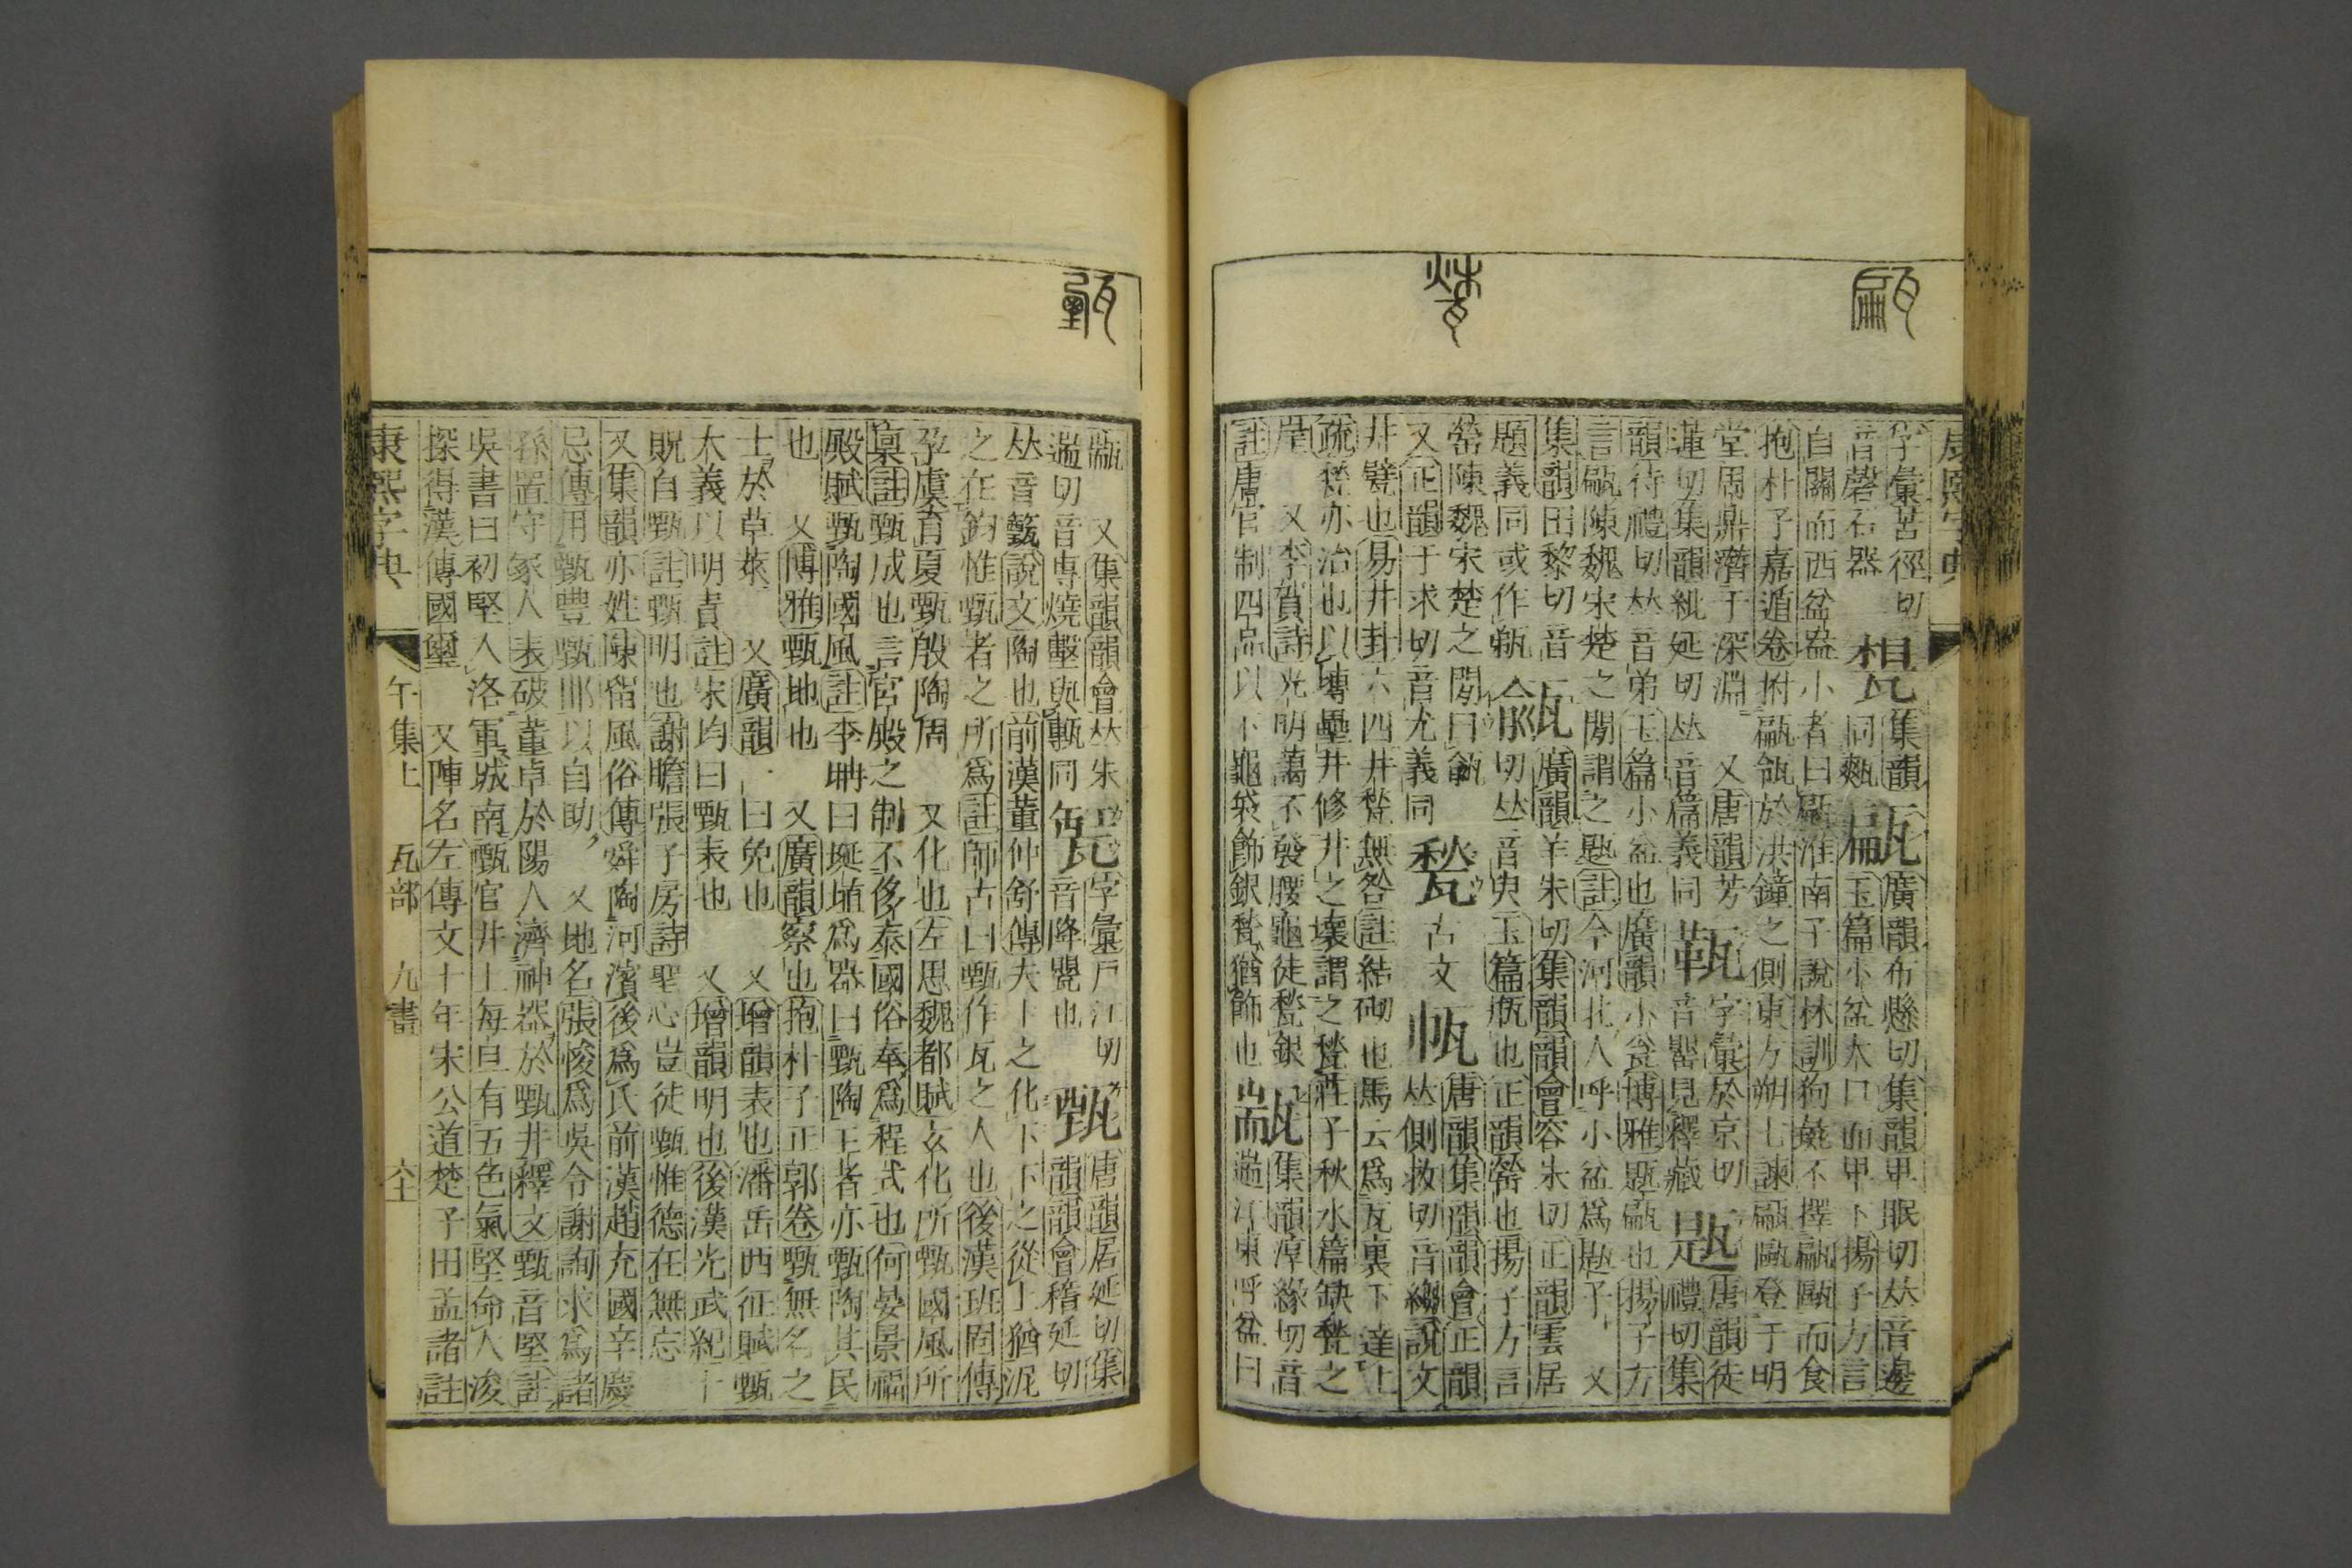 康熙字典
字彙苦徑切 集韻 甂 廣韻布縣切集韻卑眠切𠀤音邊
音磬石器 同甈 玉篇小盆大口而卑下揚子方言
自關而西盆盎小者曰甂淮南子說林訓狗彘不擇甂甌而食
抱朴子嘉遁卷拊甂瓴於洪鐘之側東方朔七諫甂甌登于明
堂周鼎濳于深淵 又唐韻芳 字彙於京切 唐韻徒
蓮切集韻紕延切𠀤音篇義同 音罌見釋藏 禮切集
韻待禮切𠀤音弟玉篇小盆也廣韻小瓮博雅題甂也揚子方
言甂陳魏宋楚之閒謂之㼵註今河北人呼小盆爲㼵子 又
集韻田黎切音 㼶 廣韻羊朱切集韻韻會容朱切正韻雲居
題義同或作 切𠀤音臾玉篇瓶也正韻罃也揚子方言
罃陳魏宋楚之閒曰㼶 甃 古文 唐韻集韻韻會正韻
又正韻于求切音尤義同 𠀤側救切音縐說文
井甓也易井卦六四井甃無咎註結砌也馬云爲瓦裏下達上
疏甃亦治也以塼壘井修井之壞謂之甃莊子秋水篇缺甃之
崖 又李賀詩光明藹不發腰龜徒甃銀 㼷 集韻淳緣切音
註唐官制四品以下龜袋飾銀甃猶飾也 遄江東呼盆曰
㼷 又集韻韻會𠀤朱 字彙戸江切 甄 唐韻居延切集
遄切音專燒墼與甎同 音降甖也 韻韻會稽延切
𠀤音籈說文陶也前漢董仲舒傳夫上之化下下之從上猶泥
之在鈞惟甄者之所爲註師古曰甄作瓦之人也後漢班固傳
孕虞育夏甄殷陶周 又化也左思魏都賦玄化所甄國風所
稟註甄成也言宮殿之制不侈泰國俗奉爲程式也何晏景福
殿賦甄陶國風註李聃曰埏埴爲器曰甄陶王者亦甄陶其民
也 又博雅甄地也 又廣韻察也抱朴子正郭卷甄無名之
士於草萊 又廣韻 曰免也 又增韻表也潘岳西征賦甄
大義以明責註宋均曰甄表也 又增韻明也後漢光武紀十
貺自甄註甄明也謝瞻張子房詩聖心豈徒甄惟德在無忘
又集韻亦姓陳留風俗傳舜陶河濱後爲氏前漢趙充國辛慶
忌傳用甄豐甄邯以自助 又地名張悛爲吳令謝詢求爲諸
孫置守冢人表破董卓於陽人濟神器於甄井釋文甄音堅註
吳書曰初堅入洛軍城南甄官井上每旦有五色氣堅命人浚
探得漢傳國璽 又陣名左傳文十年宋公道楚子田孟諸註
康熙字典 午集上 瓦部 九畫